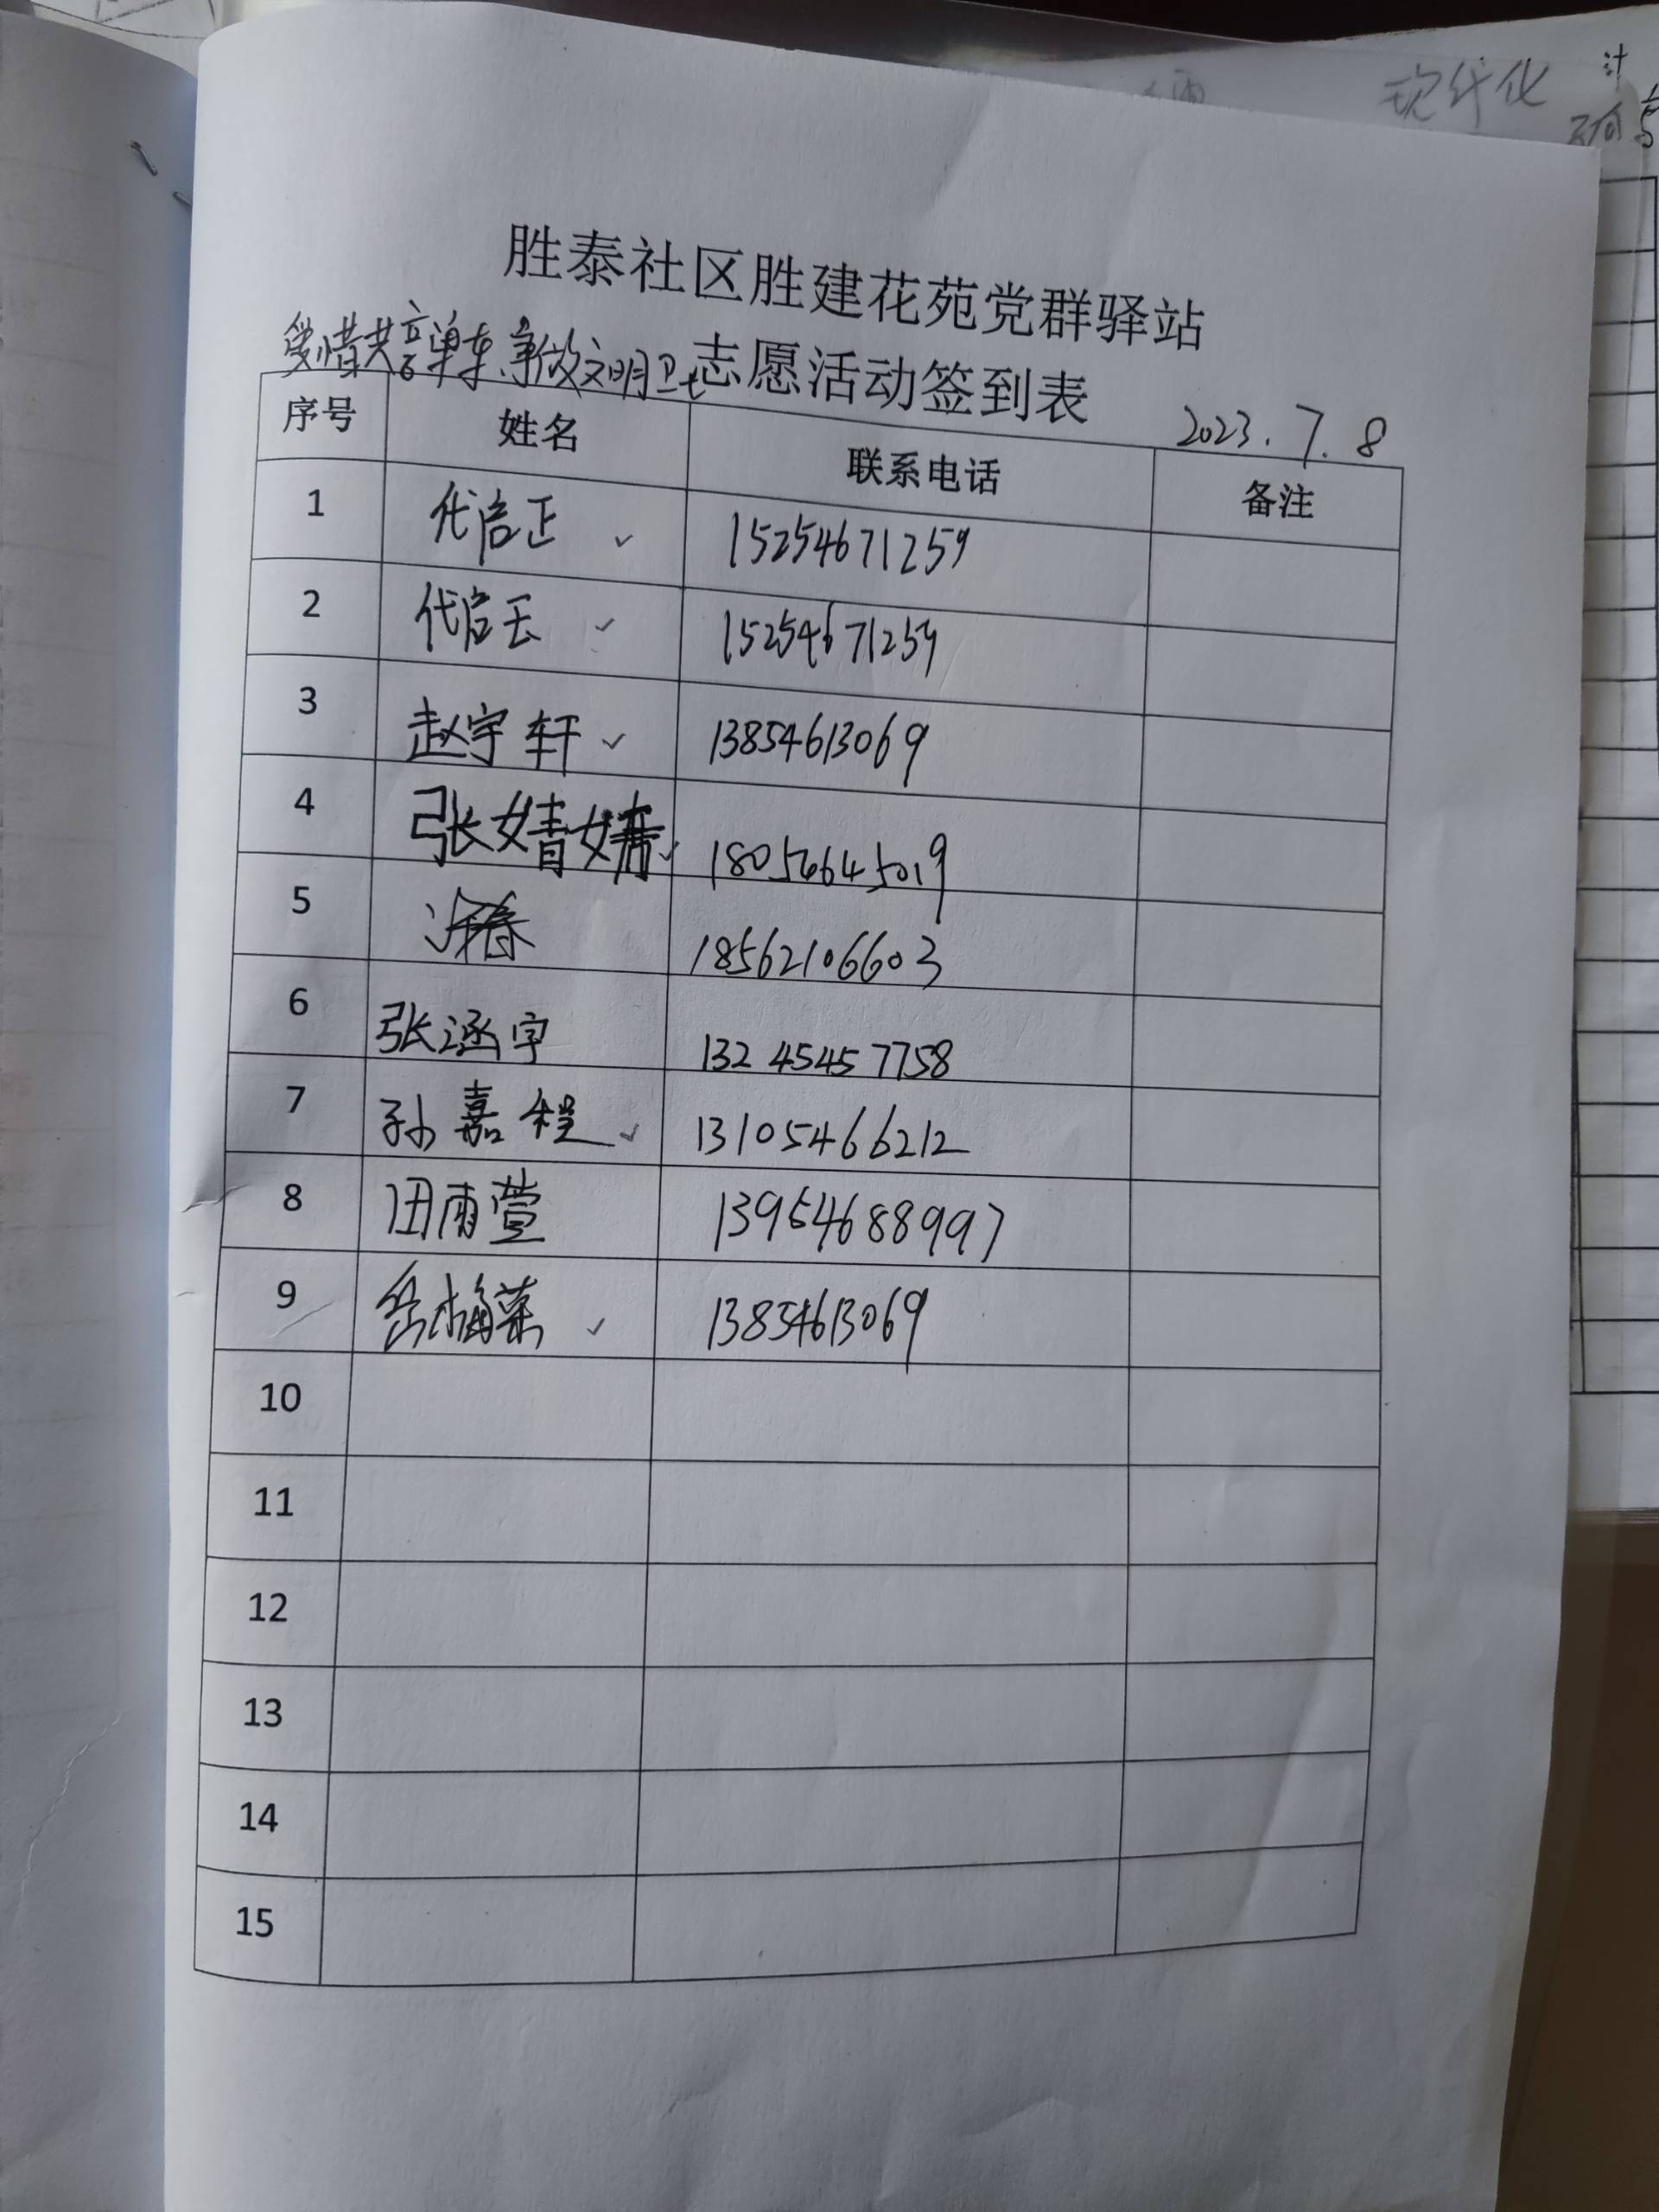 现代化
计
胜泰社区胜建花苑党群驿站
爱惜共享单车、争做文明卫士志愿活动签到表
2023.7.8
序号 姓名 联系电话 备注
1 代启正 ✓ 15254671259
2 代启 ✓ 15254671259
3 赵宇轩 ✓ 13854613069
4 张婧 ✓ 18054645019
5 18562106603
6 张涵宇 13245457758
7 孙嘉程 ✓ 13105466212
8 田雨萱 13954688997
9 岳梅菊 ✓ 13854613069
10
11
12
13
14
15